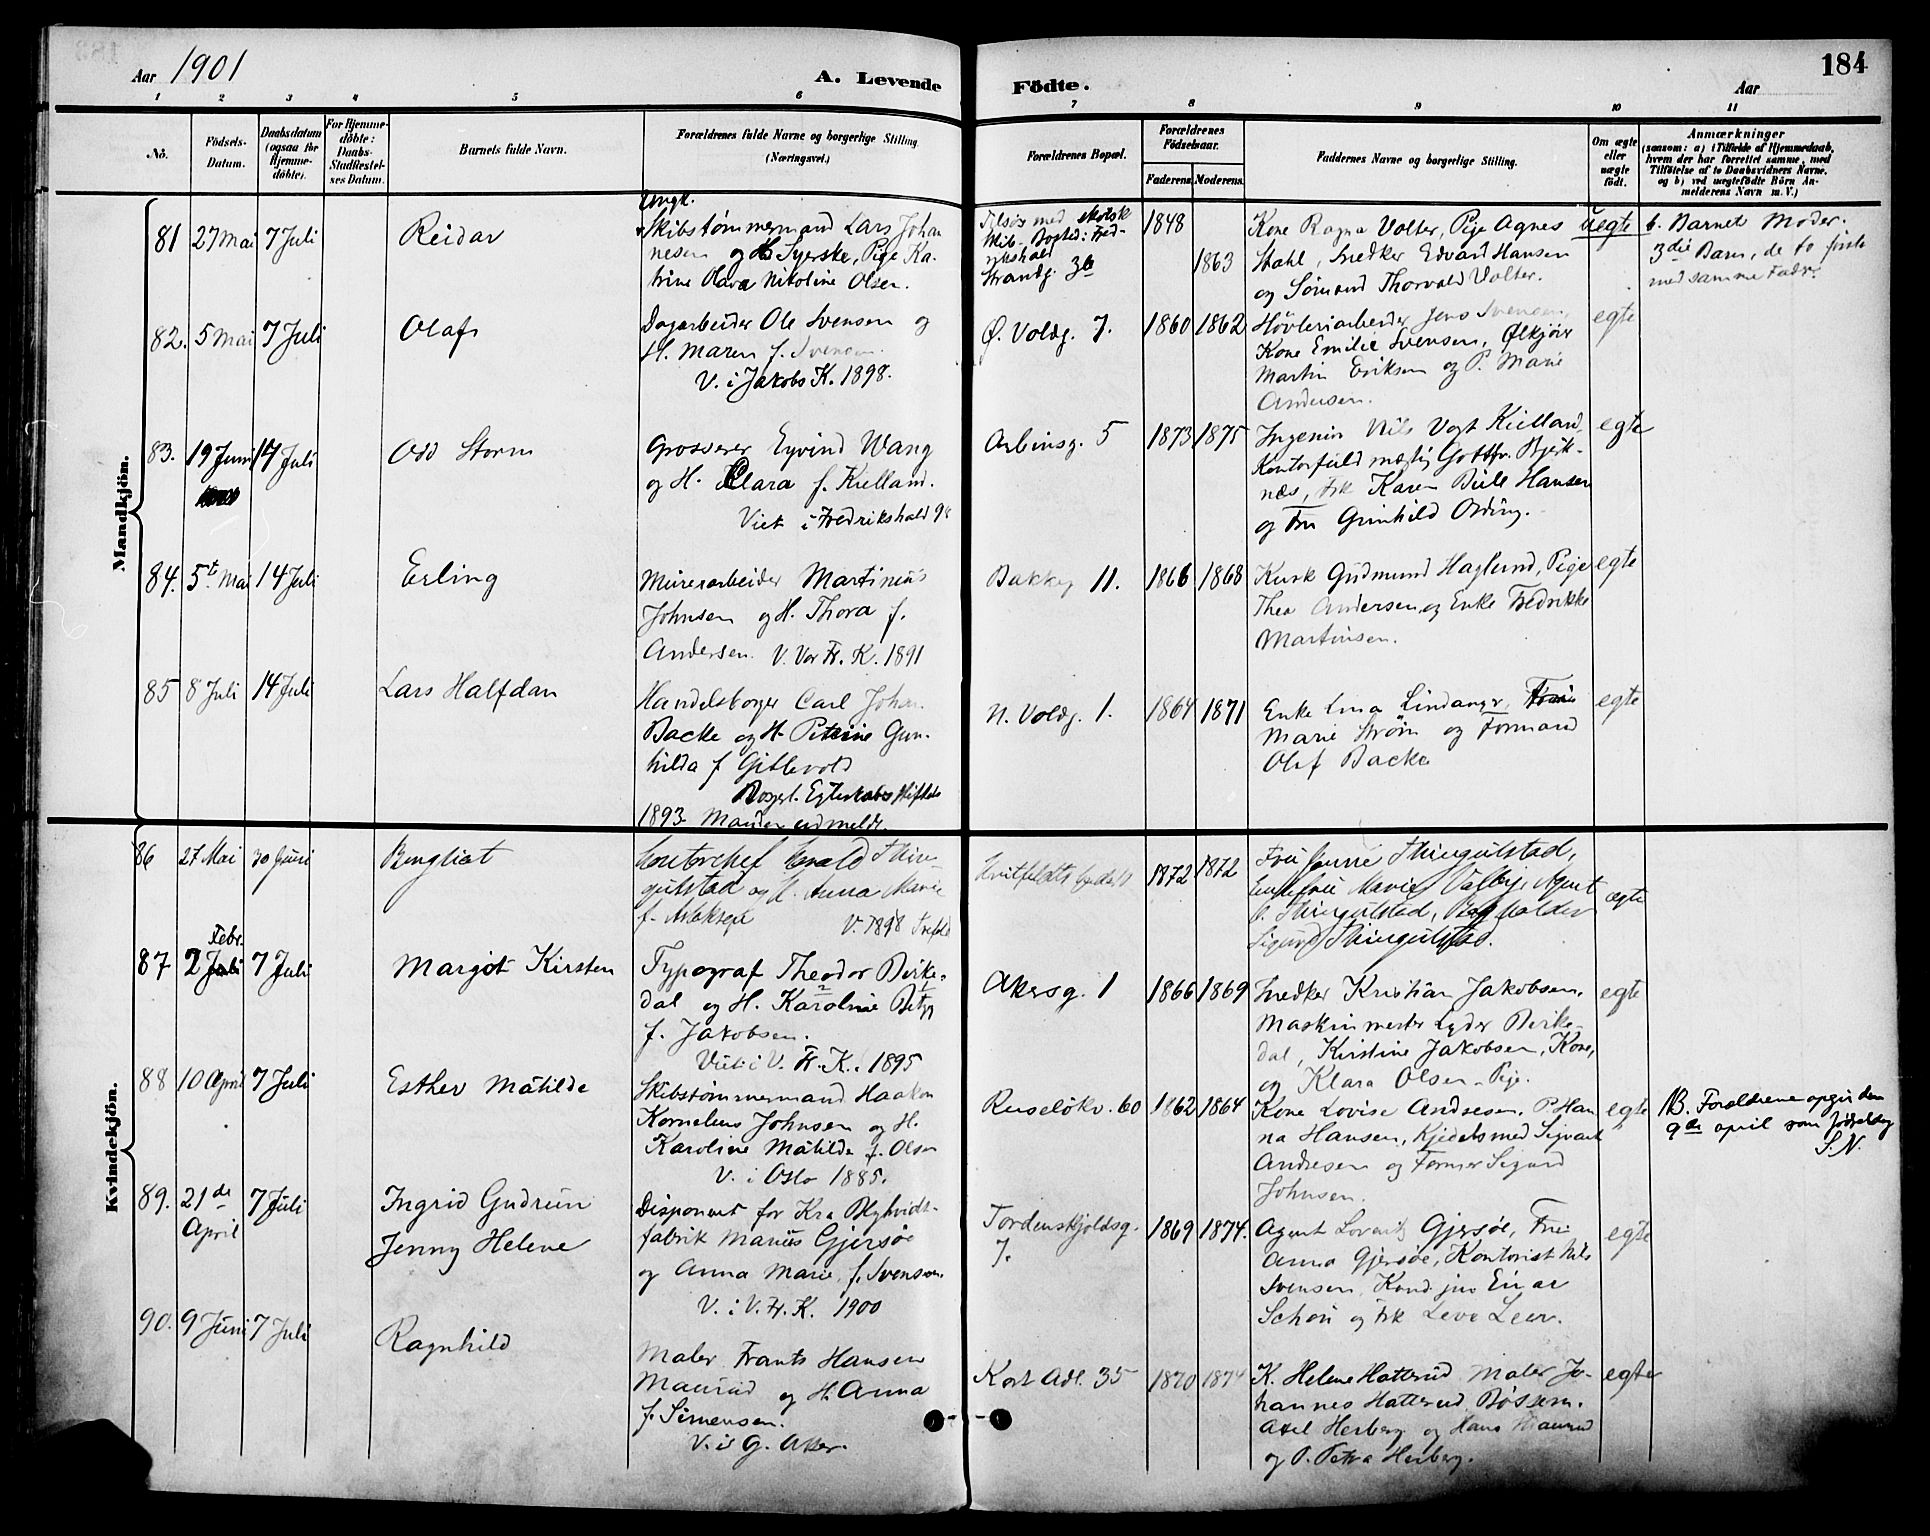 Aar 1901
A. Levende
Födte.
Aar
184
1 2 3 4 5 6 7 8 9 10 11
No.
Födsels-
Datum.
Daabsdatum
(ogsaa for
Hjemme-
döbte).
For Hjemme-
döbte:
Daabs-
Stadfæstel-
ses Datum.
Barnets fulde Navn.
Forældrenes fulde Navne og borgerlige Stilling.
(Næringsvei.)
Forældrenes Bopæl.
Forældrenes
Födselsaar.
Faderens
Moderens
Faddernes Navne og borgerlige Stilling.
Om ægte
eller
uægte
födt.
Anmærkninger
(saasom: a) i Tilfælde af Hjemmedaab,
hvem der har forrettet samme, med
Tilföielse af to Daabsvidners Navne,
og b) ved uægtefödte Börn An-
melderens Navn m. V.)
Mandkjön.
81 27 Mai 7 Juli
Reidar
Ungk.
Skibstømmermand Lars Johan
nesen og Syerske, Pige Ka-
trine Olava Nikoline Olsen.
Tilsøs med skotsk
Skib - Bosted: Fred-
rikshald
Strandg. 36
1848
1863
Kone Ragna Volter, Pige Agnes
Stahl, Snedker Edvard Hansen
og Sømand Thorvald Volter.
uegte
b. Barnets Moder.
3die Barn, de to første
med samme Fader.
82. 5 Mai 7 Juli
Olaf
Dagarbeider Ole Svensen og
H. Maren f. Svensen.
V. i Jakobs K. 1898.
Ø. Voldg. 7.
1860 1862
Høvleriarbeider Jens Svensen,
Kone Emilie Svensen, Ølkjører
Martin Eriksen og P. Marie
Andersen.
egte
83. 19 Juni 14 Juli
Odd Storm
Grosserer Eyvind Wang
og H. Clara f. Kielland.
Viet i Fredrikshald 98
Arbinsg. 5
1873 1875
Ingeniør Nils Vogt Kielland,
Kontorfuldmægtig Gottfr. Bjerk-
næs, Frk Karen Bille Hansen
og Fru Gunhild Ording.
egte
84. 5t Mai 14 Juli
Erling
Murerarbeider Martinius
Johnsen og H. Thora f.
Andersen. V. Vor Fr. K. 1891
Bakkeg 11.
1866 1868
Kusk Gudmund Haglund, Pige
Thea Andersen og Enke Fredrikke
Martinsen.
egte
85 8 Juli 14 Juli
Lars Halfdan
Handelsborger Carl Johan
Backe og H. Petrine Gun-
hilda f Gitlevold
Borgerl. Egteskabs stiftels
1893. Manden udmeldt.
N. Voldg. 1.
1864 1871
Enke Lina Lindanger, 
Marie Strøm og Formand
Olaf Backe
egte
Kvindekjön.
86 27 Mai 30 Juni
Bergliot
Kontorchef Harald Thin-
gulstad og H. Anna Marie
f. Aslaksen
V. 1898
Hvitfeldts
1872 1872
Fru Jenni Thingulstad,
Enkefru Marie Valby, Agent
O. Thingulstad,
Sigurd Thingulstad.
ægte
87 2 Febr. 7 Juli
Margot Kirsten
Typograf Theodor Birke-
dal og H. Karoline Betzy
f. Jakobsen.
Viet i V. Fr. K. 1895
Akersg. 1
1866 1869
Snedker Kristian Jakobsen,
Maskinmester Lyder Birke-
dal, Kirstine Jakobsen, Kone,
og Klara Olsen - Pige.
egte
88 10 April 7 Juli
Esther Matilde
Skibstømmermand Haakon
Kornelius Johnsen og H.
Karoline Matilde f. Olsen
V. i Oslo 1885.
Ruseløkv. 60
1862 1864
Kone Lovise Andresen, P. Han
na Hansen, Kjedelsmed Sigvart
Andresen og Former Sigurd
Johnsen.
egte
NB. Forældrene opgir den
9de april som Fødselsdag
S.N.
89. 21de April 7 Juli
Ingrid Gudrun
Jenny Helene
Disponent for Kra Blyhvidt-
fabrik Marius Gjersøe
og Anna Marie, f. Svensen.
V. i V. Fr. K. 1900
Tordenskjoldsg.
7.
1869 1874.
Agent Lorentz Gjersøe, Fru
Anna Gjersøe, Kontorist Nils
Svensen, Kand. jur Einar
Schøn og Frk Leve Leer.
egte
90. 9 Juni 7 Juli
Ragnhild
Maler Frants Hansen
Maurud og H. Anna
f. Simensen.
V. i G. Aker.
Kort Adl. 35
1870 1874
K. Helene Hatterud, Maler Jo-
hannes Hatterud, Bøssem.
Axel Herberg og Hans Maurud
og P. Petra Herberg.
egte